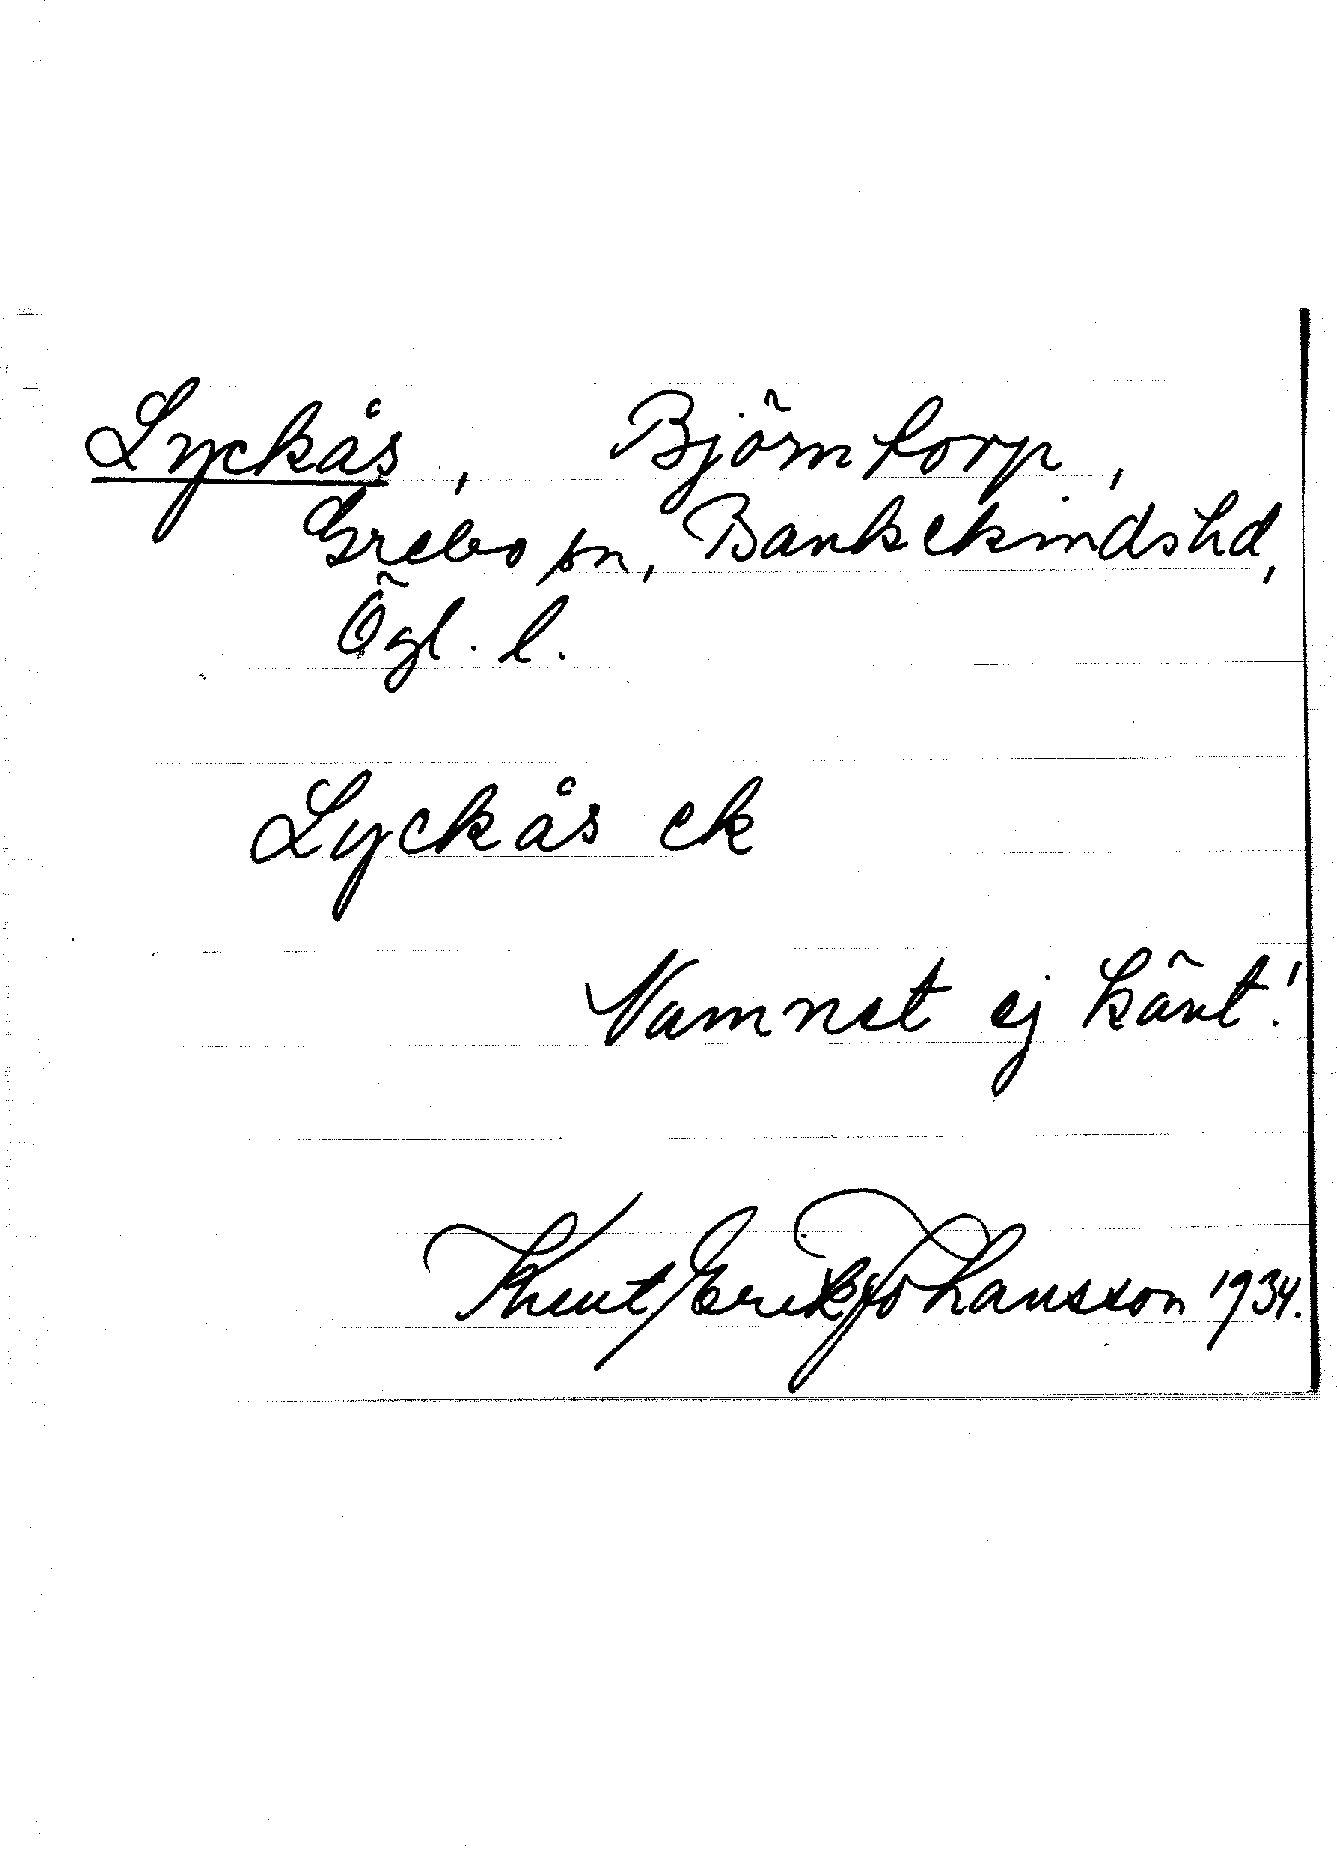 Lyckås, Björntorp,
Grebo sn, Bankekinds hd,
Ögl. l.
Lyckås ek
Namnet ej känt!
Knut Erik Johansson 1934.